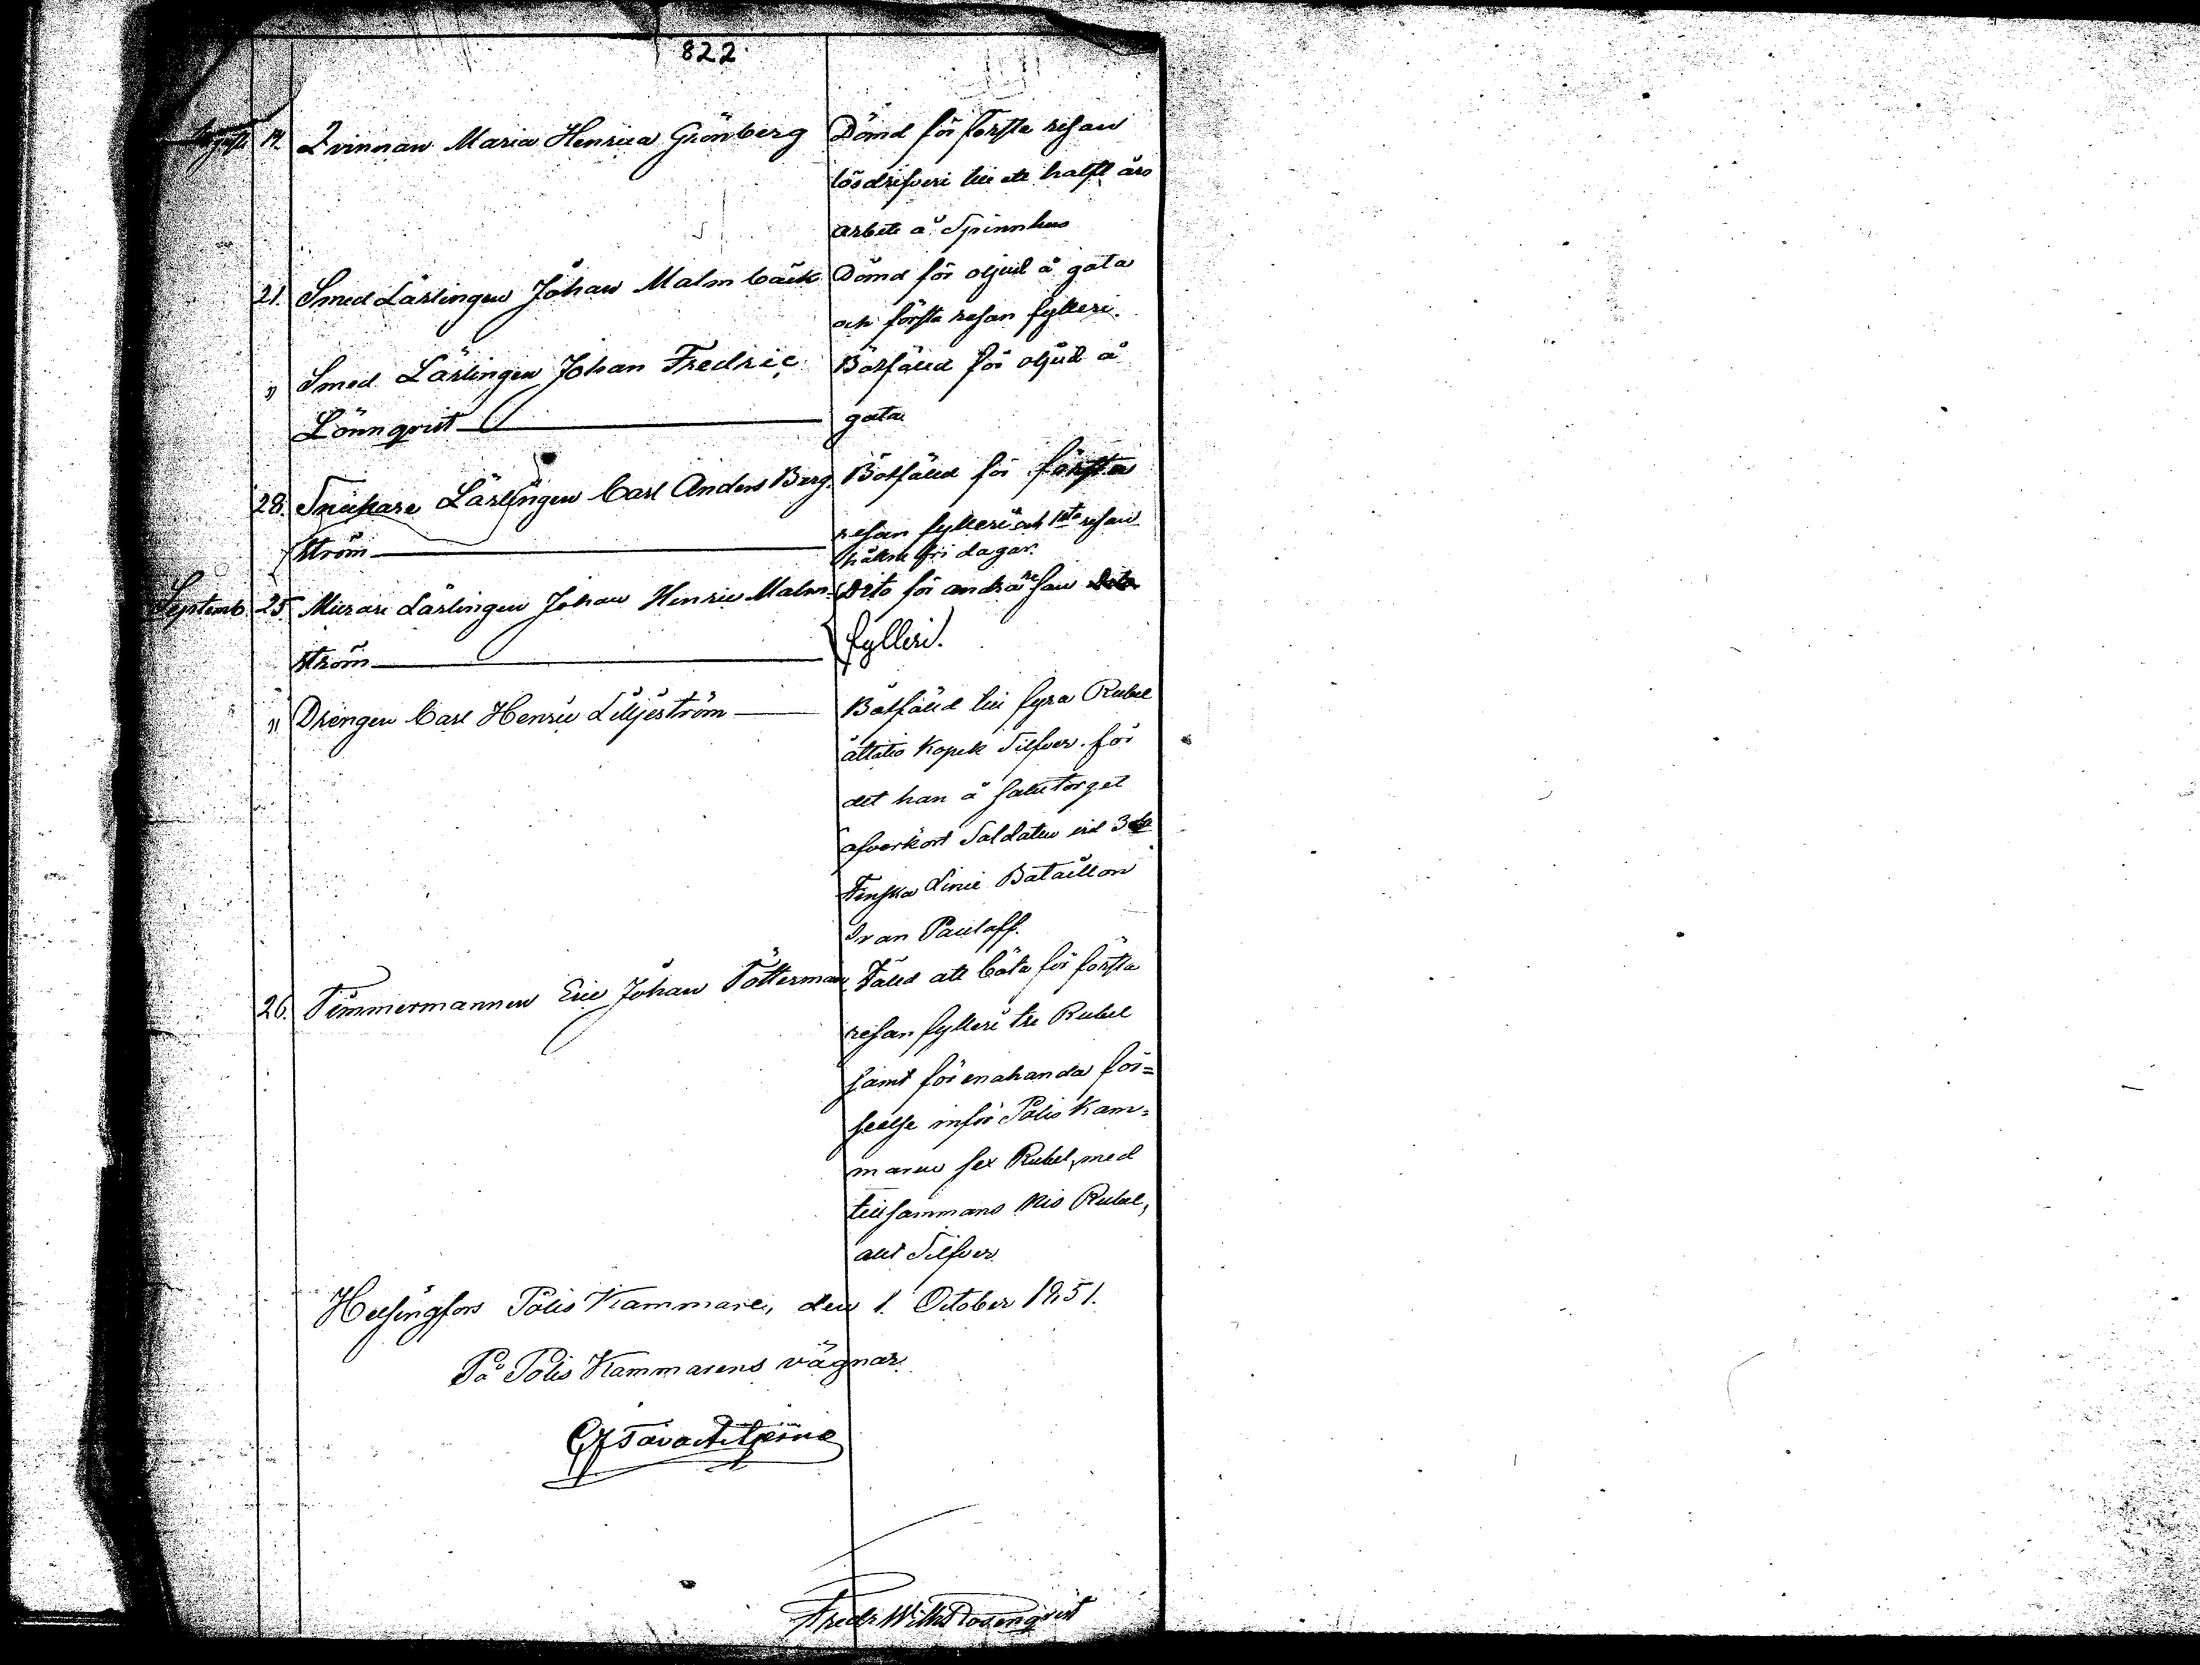 822
Augusti 14. Qvinnan Maria Henrica Grönberg Dömd för första resan
lösdrifveri till ett halft års
arbete å Spinnhus
21. Smed Lärlingen Johan Malmbäck Dömd för oljud å gata
och första resan fylleri.
" Smed Lärlingen Johan Fredric Bötfälld för oljud å
Lönnqvist gata
28. Snickare Lärlingen Carl Anders Berg- Bötfälld för första
ström resan fylleri och 1sta resan
fri dagar.
Septemb. 25. Murare Lärlingen Johan Henric Malm- Dito för andra resan
ström fylleri.
" Drengen Carl Henric Liljeström Bötfälld till fyra Rubel
åttatio Kopek Silfver för
det han å salutorget
öfverkört Soldaten vid 3dje
Finska Linie Bataillon
Ivan Pauloff.
26. Timmermannen Eric Johan Tötterman Fälld att böta för första
resan fylleri tre Rubel
samt för enahanda för=
seelse inför Polis Kam=
maren sex Rubel, med
tillsammans nio Rubel,
allt Silfver
Helsingfors Polis Kammare, den 1. October 1851.
På Polis Kammarens vägnar
Fredr Wilh Rosenqvist